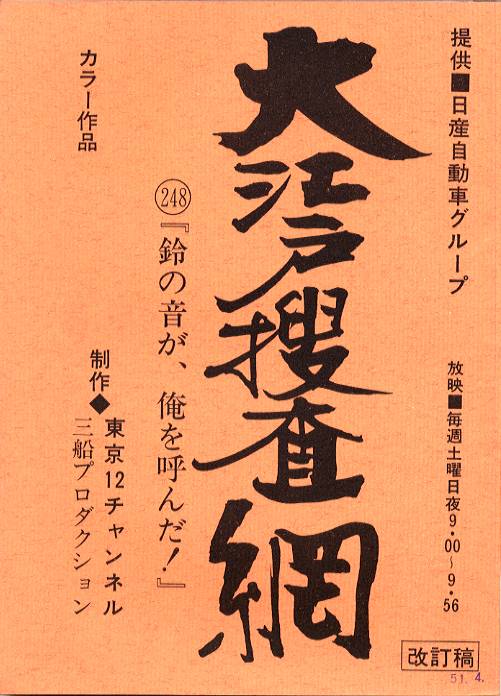 提供■日産自動車グループ
放映■毎週土曜日夜9・00〜9・56
大江戸捜査網
㉔㊇『鈴の音が、俺を呼んだ！』
カラー作品
制作◆東京12チャンネル
三船プロダクション
改訂稿
51.4.